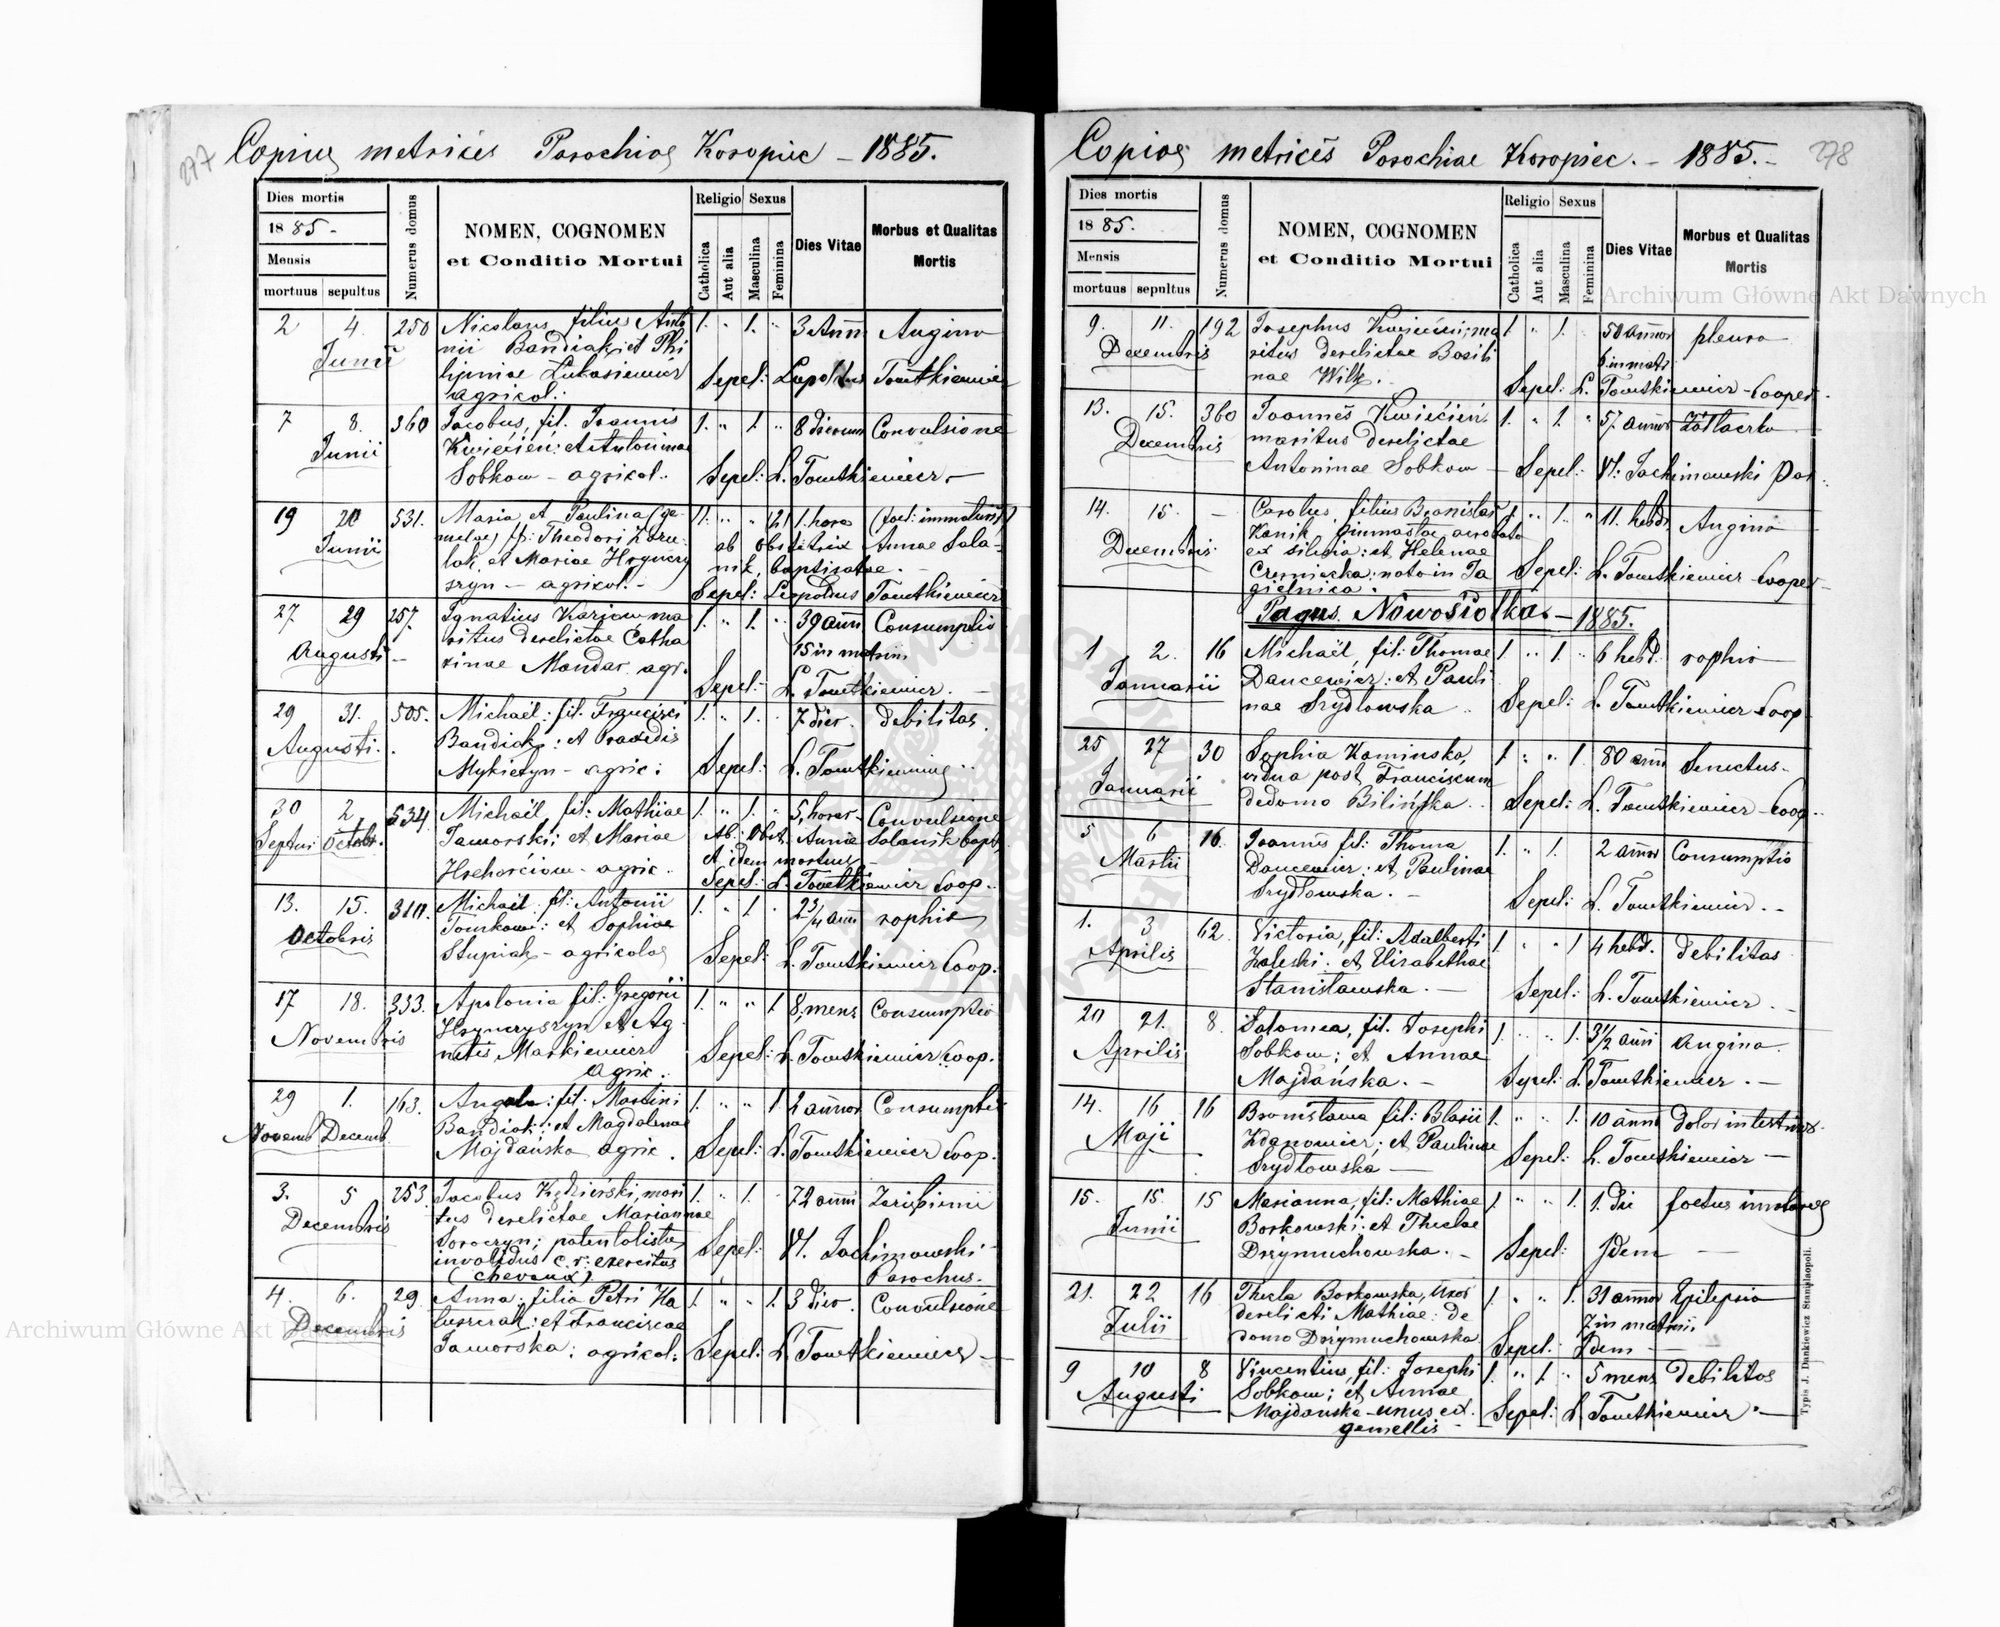 277
Copiae metrices Parochiae Koropiec - 1885.
Dies mortis
1885.-
Mensis
mortuus sepultus
Numerus domus
NOMEN, COGNOMEN
et Conditio Mortui
Religio Sexus
Catholica
Aut alia
Masculina
Feminina
Dies Vitae
Morbus et Qualitas
Mortis
2 4. 250 Nicolaus filius Anto 1. " 1. " 3 Anni Angina
Junii nii Bandiak et Phi
lipinae Łukasiewicz Sepel: Leopoldus Tomtkiewicz
agricol.:
7 8. 360 Jacobus, fil. Joannis 1. " 1. " 8 dierum Convulsione
Junii Kwiecień: et Antoninae
Sobkow - agricol.: Sepel: L. Tomtkiewicz -
19 20 531. Maria et Paulina (ge- 11. " " (2) 1. hora (foet: immaturi)
Junii melae) fil: Theodori ab obstetrice Annae Sala-
et Mariae nik, baptisatae. -
agricol. - Sepel: Leopoldus Tomtkiewicz
27 29 257. Ignatius Karjow ma 1. " 1. " 39 anni Consumptio
Augusti - ritus derelictae Catha 15 in matrim
rinae Mandar agr. Sepel: - L. Tomtkiewicz. -
29 31. 505. Michaël: fil. Francisci 1. " 1. " 7 dier. debilitas.
Augusti. Bandiak: et Praxedis
Mykietyn - agric: Sepel: L. Tomtkiewicz
30 2. 534. Michaël, fil: Mathiae 1. " 1. " 5 horar- Convulsione
Septbr: Octobr. Jaworski; et Mariae Ab: Obst. Annae Salanik bapt.
Hrehorciow - agric. et idem mortuus -
Sepel: L. Tomtkiewicz Coop.
13. 15. 310. Michaël fil: Antonii 1. " 1. " 2 3/4 anni
Octobris et Sophiae
Stupiak - agricolae Sepel: L. Tomtkiewicz Coop.
17 18. 333. Apolonia fil: Gregorii 1. " " 1. 8. mens Consumptio
Novembris Hryncyszyn et Ag
netis Markiewicz Sepel: L. Tomtkiewicz Coop.
agric.
29 1. 163. Angela: fil. Martini 1. " " 1. 2 annor Consumptio
Novemb Decemb. Bandiak: et Magdalenae
Majdańska agric. Sepel: L. Tomtkiewicz Coop.
3. 5 253. Jacobus mari 1. " 1. " 72 anni
Decembris tus derelictae Mariannae
Soroczyn; patentalista, Sepel: Vl. Jachimowski -
invalidus c. r: exercitus Parochus.
4. 6. 29. Anna: filia Petri Ha 1. " " 1. 3 dier. Convulsione
Decembris luszczak: et Franciscae
Jaworska; agricol: Sepel: L. Tomtkiewicz -
278
Copiae metrices Parochiae Koropiec. - 1885. -
Dies mortis
1885.
Mensis
mortuus sepultus
Numerus domus
NOMEN, COGNOMEN
et Conditio Mortui
Religio Sexus
Catholica
Aut alia
Masculina
Feminina
Dies Vitae
Morbus et Qualitas
Mortis
9. 11. 192 Josephus Kwiecień; ma 1. " 1. 50 annor pleura
Decembris ritus derelictae Basili 6 in matr.
nae Wilk. Sepel: L. Tomtkiewicz - Cooper.
13. 15. 360 Joannes Kwiecień 1. " 1. " 57 annor
Decembris maritus derelictae
Antoninae Sobkow - Sepel: Vl: Jachimowski Par.
14. 15. - Carolus, filius Bronislai 1. " 1. " 11. hebd. Angina
Decembris Kanik gimnastae acrobata
ex silesia: et Helenae
Czernicka: nato in Ja Sepel: L. Tomtkiewicz - Cooper -
gielnica.
Pagus. Nowosiołka. - 1885.
1 2. 16 Michaël, fil: Thomae 1. " 1. " 6 hebd.
Januarii Dancewicz: et Pauli
nae Szydłowska Sepel: L. Tomtkiewicz Coop.
25 27 30 Sophia Kaminska, 1. " " 1. 80 anni Senectus -
Januarii vidua post Franciscum
de domo Bilińska Sepel: L. Tomtkiewicz - Coop.
5 6 16. Joannes fil: Thoma 1. " 1. 2 annor Consumptio
Martii Dancewicz: et Paulinae
Szydłowska. - Sepel: L. Tomtkiewicz. -
1. 3 62. Victoria, fil: Adalberti 1. " " 1 4 hebd. debilitas
Aprilis Zaleski. et Elisabethae
Stanisławska. - Sepel: L. Tomtkiewicz -
20 21. 8. Salomea, fil. Josephi 1. " " 1. 3 1/2 anni angina.
Aprilis Sobkow; et Annae
Majdańska. - Sepel: L. Tomtkiewicz. -
14. 16 16 Bronisława fil: Blasii 1. " " 1. 10 anni dolor intestinor.
Maji Zdanowicz; et Paulinae
Szydłowska - Sepel: L. Tomtkiewicz -
15. 15. 15 Marianna, fil: Mathiae 1. " " 1. 1. Die foetus imaturus
Junii Borkowski: et Theclae
Drzymuchowska. - Sepel: Idem -
21. 22 16 Thecla Borkowska, uxor 1. " " 1. 31 annor Epilepsia
Julii derelicti Mathiae: de 7 in matrii
domo Drzymuchowska Sepel: Idem -
9 10 8 Vincentius, fil: Josephi 1. " 1. " 5 mens debilitas
Augusti Sobkow; et Annae
Majdanska - unus ex Sepel: L. Tomtkiewicz -
gemellis -
Typis J. Dankiewicz Stanislaopoli.
Archiwum Główne Akt Dawnych
Archiwum Główne Akt Dawnych